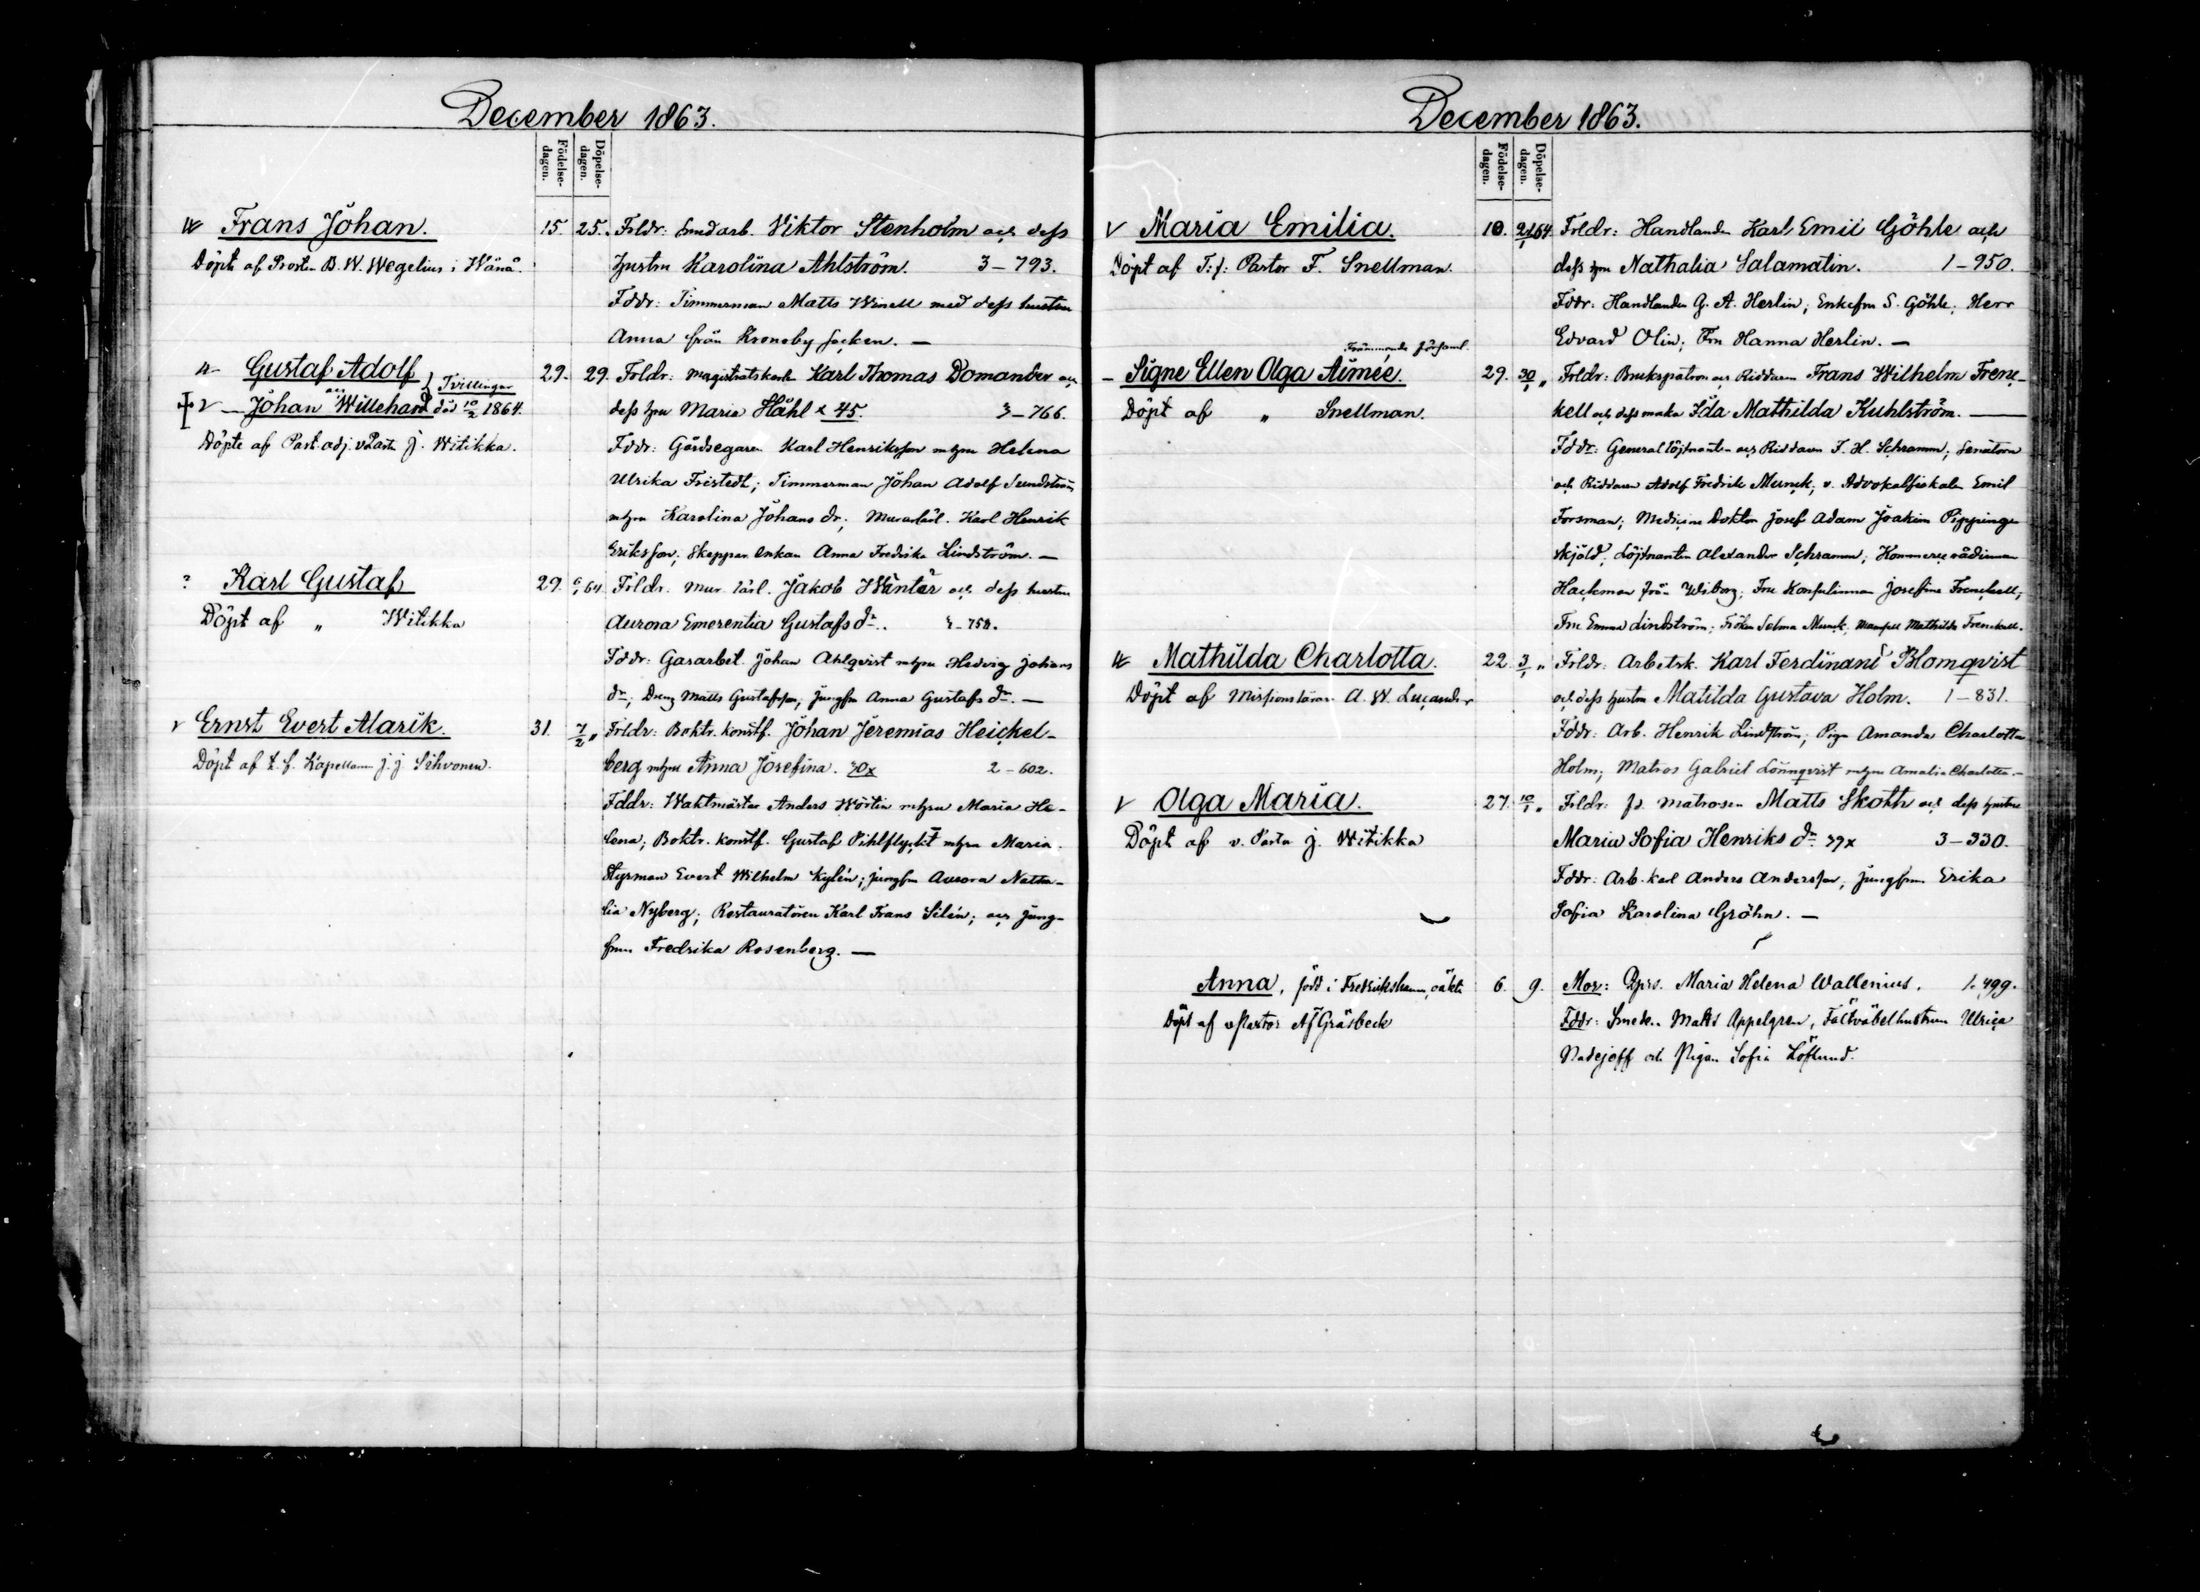 December 1863.
Födelse-dagen.
Döpelse-dagen.
Frans Johan.
Döpt af Prosten B. W. Wegelius i Wånå.
15. 25. Frldr: Smedarb. Viktor Stenholm och dess
hustru Karolina Ahlström. 3-793.
Fddr: Timmerman Matts Winell med dess hustru
Anna från Kronoby socken. —
Gustaf Adolf
och
Johan Willehard
Tvillingar
död 10/2 1864.
Döpte af Past. adj. v. Past. J. Witikka.
29. 29. Frldr: Magistratskarln Karl Thomas Domander och
dess hru Maria Håhl x 45. 3-766.
Fddr: Gårdsegaren Karl Henriksson m hru Helena
Ulrika Fristedt; Timmerman Johan Adolf Sundström
m hru Karolina Johans dr; Murarlärl. Karl Henrik
Eriksson; Skeppar enkan Anna Fredrika Lindström. —
? Karl Gustaf
Döpt af „ Witikka
29. 6/1 64 Frldr. Mur. lärl. Jakob Wäntär och dess hustru
Aurora Emerentia Gustafs dr. 758.
Fddr: Gasarbet. Johan Ahlqvist m hru Hedvig Johans
dr; Dreng Matts Gustafsson; Jungfru Anna Gustafs dr. —
v Ernst Evert Alarik.
Döpt af t. f. Kapellanen J. J. Sihvonen.
31. 7/2 „ Frldr: Boktr. konstf. Johan Jeremias Heickel-
berg m hru Anna Josefina. 30x 2-602.
Fddr: Waktmästar Anders Wörtin m hru Maria He-
lena; Boktr. konstf. Gustaf Pihlflyckt m hru Maria.
Styrman Evert Wilhelm Kylén; jungfru Aurora Natha-
lia Nyberg; Restauratören Karl Frans Silén; och jung-
frun Fredrika Rosenberg. —
December 1863.
Födelse-dagen.
Döpelse-dagen.
v Maria Emilia.
Döpt af T. f. Pastor F. Snellman.
10. 2/1 64 Frldr: Handlanden Karl Emil Göhle och
dess hru Nathalia Salamatin. 1-950.
Fddr: Handlanden G. A. Herlin; Enkefru S. Göhle; Herr
Edvard Olin; Fru Hanna Herlin. —
Främmande församl.
– Signe Ellen Olga Aimée.
Döpt af „ Snellman.
29. 30/1 „ Frldr: Brukspatron och Riddaren Frans Wilhelm Frenc-
kell och dess maka Ida Mathilda Kuhlström. —
Fddr: General löjtnanten och Riddaren F. H. Schramm; Senatorn
och Riddaren Adolf Fredrik Munck; v. Advokatfiskalen Emil
Forsman; Medicine Doktor Josef Adam Joakim Pippingsk-
skjöld; Löjtnanten Alexander Schramm; Kommerce rådinnan
Hackman från Wiborg; Fru Konsulinnan Josefine Frenckell;
Fru Emma Lindström; Fröken Selma Munck; Mamsell Mathilda Frenckell.
Mathilda Charlotta.
Döpt af Missionsläraren A. W. Lucander
22. 3/1 „ Frldr: Arbetsk. Karl Ferdinand Blomqvist
och dess hustru Matilda Gustava Holm. 1-831.
Fddr: Arb. Henrik Lindström; Piga Amanda Charlotta
Holm; Matros Gabriel Lönnqvist m hru Amalia Charlotta. —
v Olga Maria.
Döpt af v. Pastor J. Witikka
27. 10/1 „ Frldr: fd. matrosen Matts Skoth och dess hustru
Maria Sofia Henriks dr 39x 3-330.
Fddr: Arb. karl Anders Andersson; jungfrun Erika
Sofia Karolina Gröhn. —
Anna, född i Fredrikshamn, oäkta
Döpt af v Pastor Af Gråsbeck
6. 9. Mor: Maria Helena Wallenius. 1.499.
Fddr: Smeden Matts Appelgren, Fältväbelhustrun Ulrica
Nadejoff och Pigan Sofia Löflund.